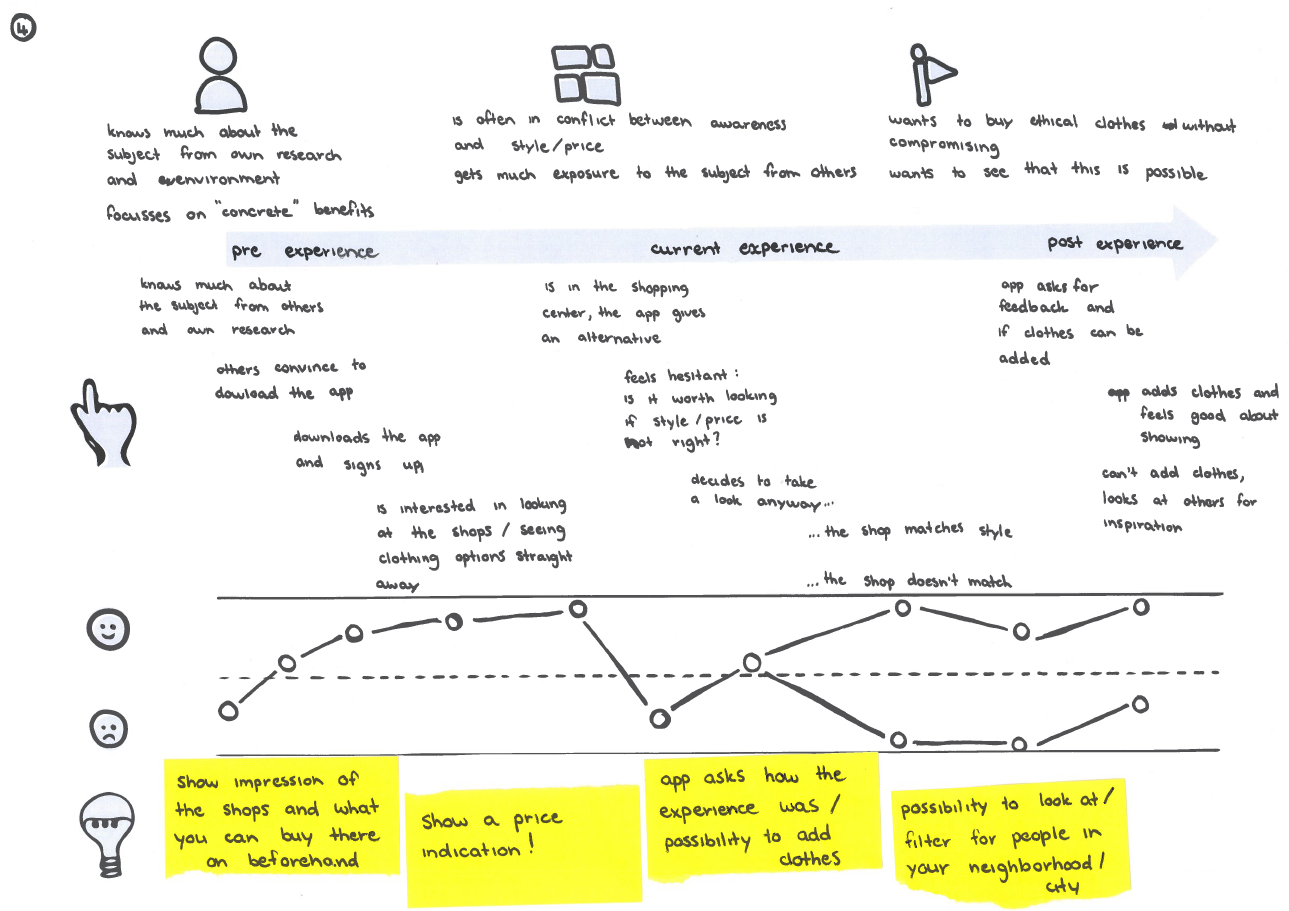 4
knows much about the
subject from own research
and environment
focusses on "concrete" benefits
is often in conflict between awareness
and style/price
gets much exposure to the subject from others
wants to buy ethical clothes without
compromising
wants to see that this is possible
pre experience
current experience
post experience
knows much about
the subject from others
and own research
others convince to
dowload the app
downloads the app
and signs up
is interested in looking
at the shops / seeing
clothing options straight
away
is in the shopping
center, the app gives
an alternative
feels hesitant:
is it worth looking
if style/price is
not right?
decides to take
a look anyway...
...the shop matches style
...the shop doesn't match
app asks for
feedback and
if clothes can be
added
adds clothes and
feels good about
showing
can't add clothes,
looks at others for
inspiration
show impression of
the shops and what
you can buy there
on beforehand
Show a price
indication!
app asks how the
experience was /
possibility to add
clothes
possibility to look at /
filter for people in
your neighborhood /
city